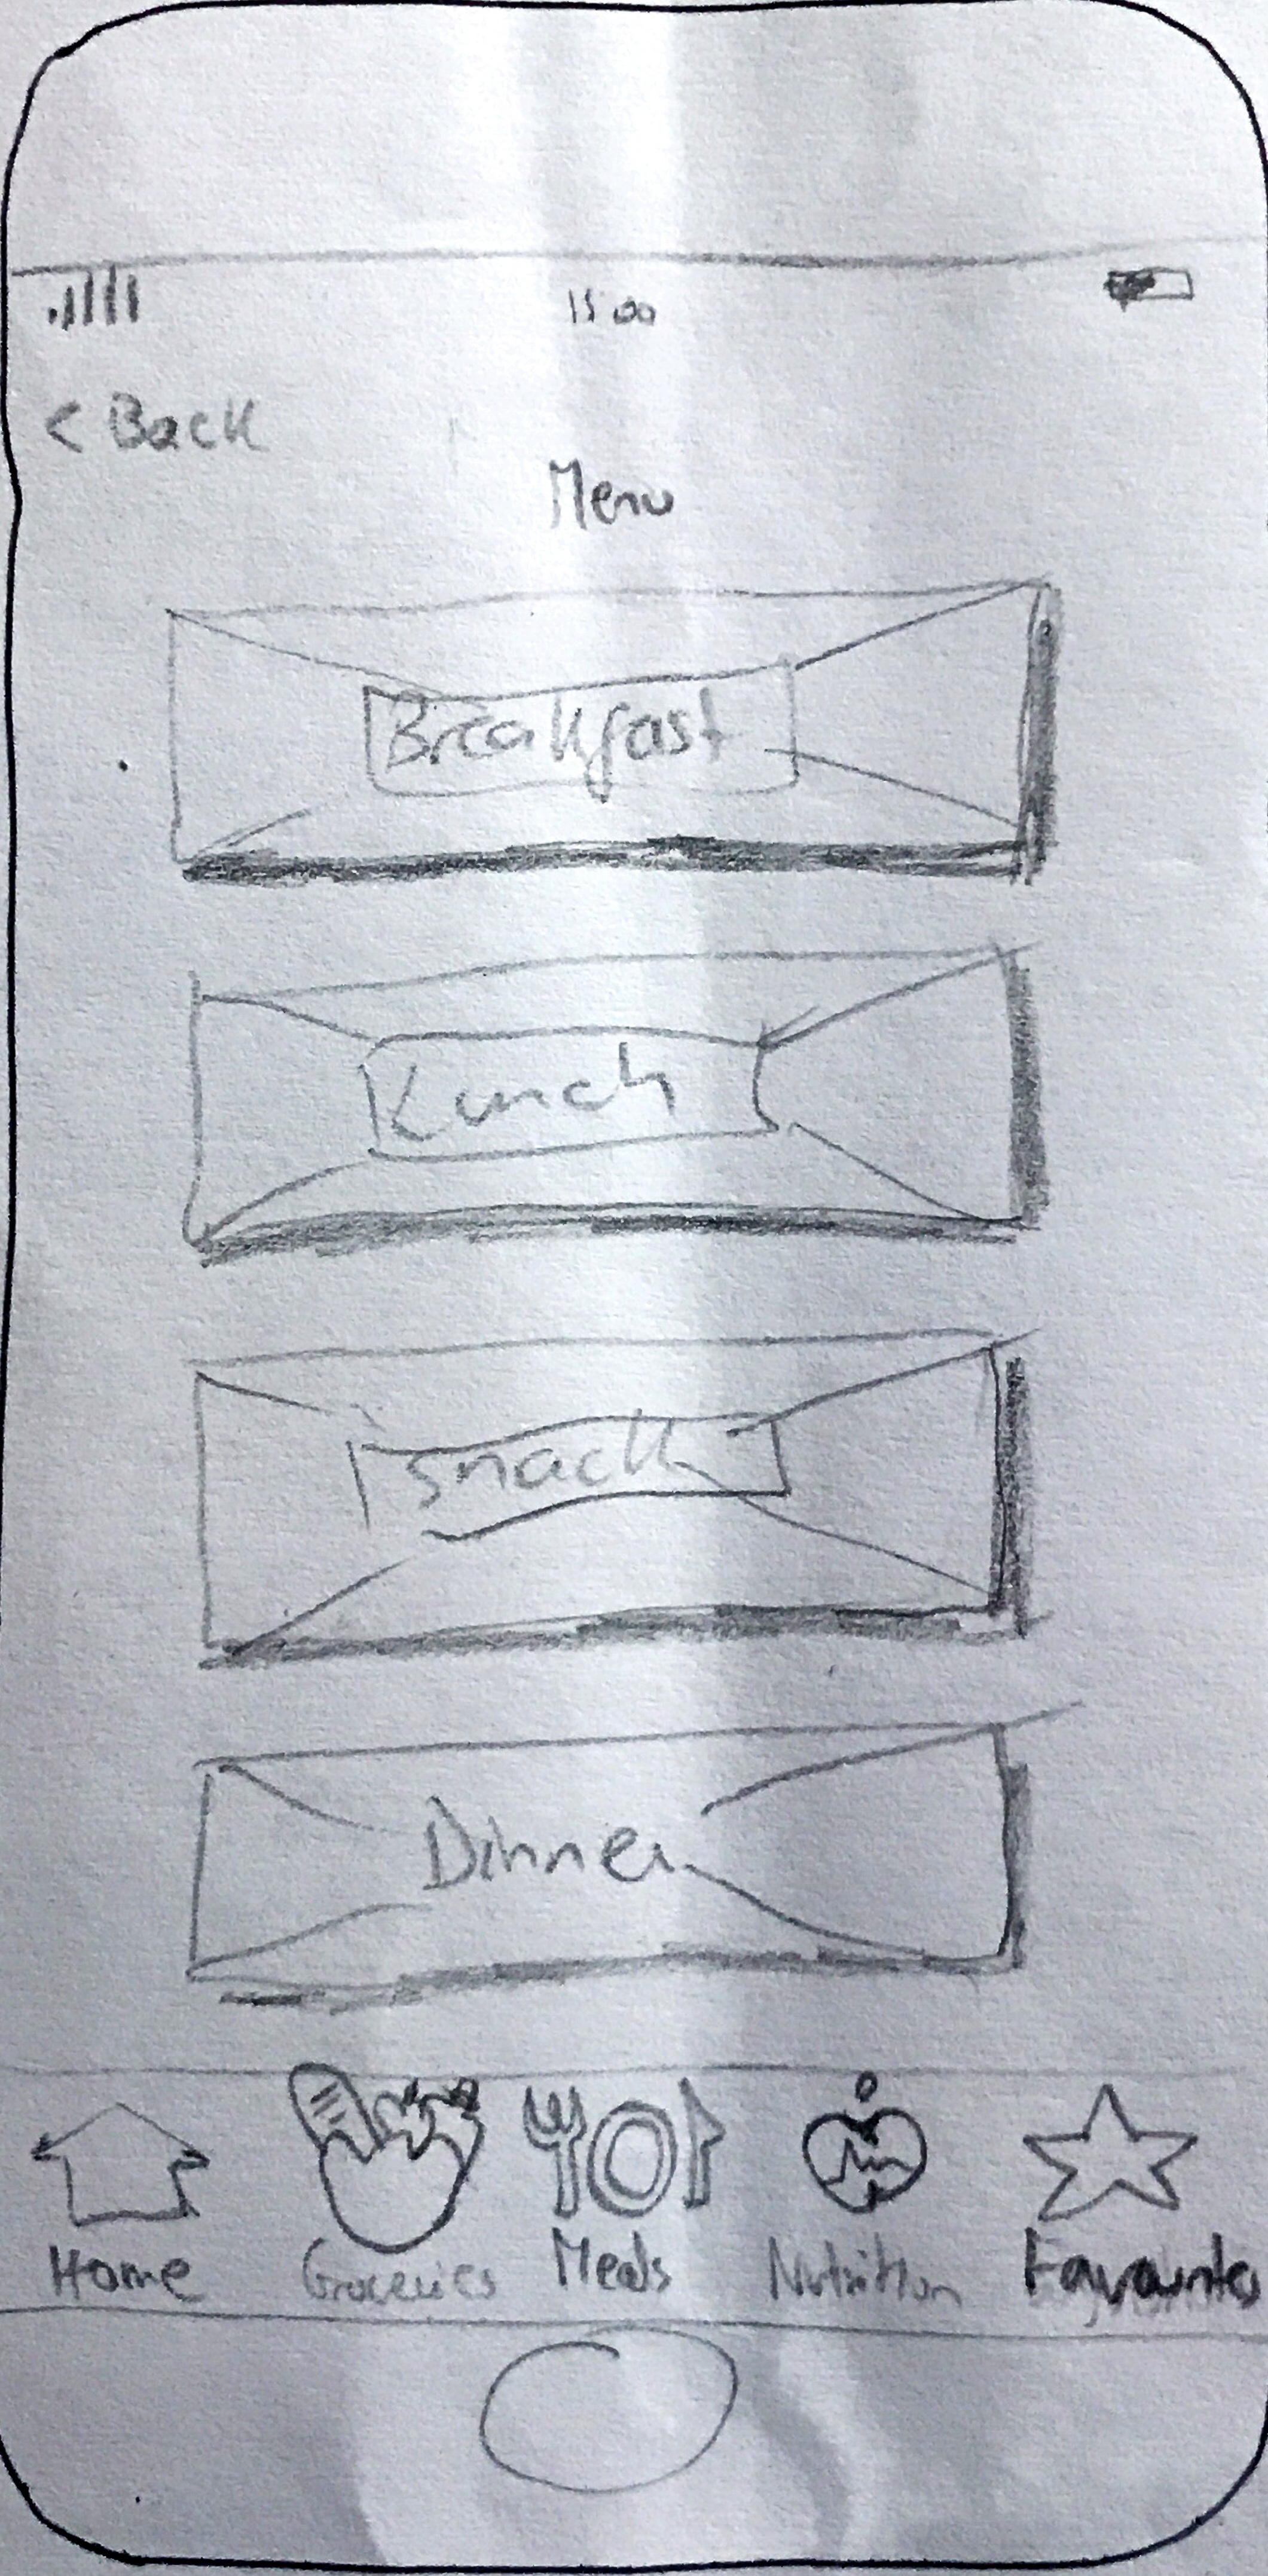 15:00
< Back
Menu
Breakfast
Lunch
Snack
Dinner
Home Groceries Meals Nutrition Favourites